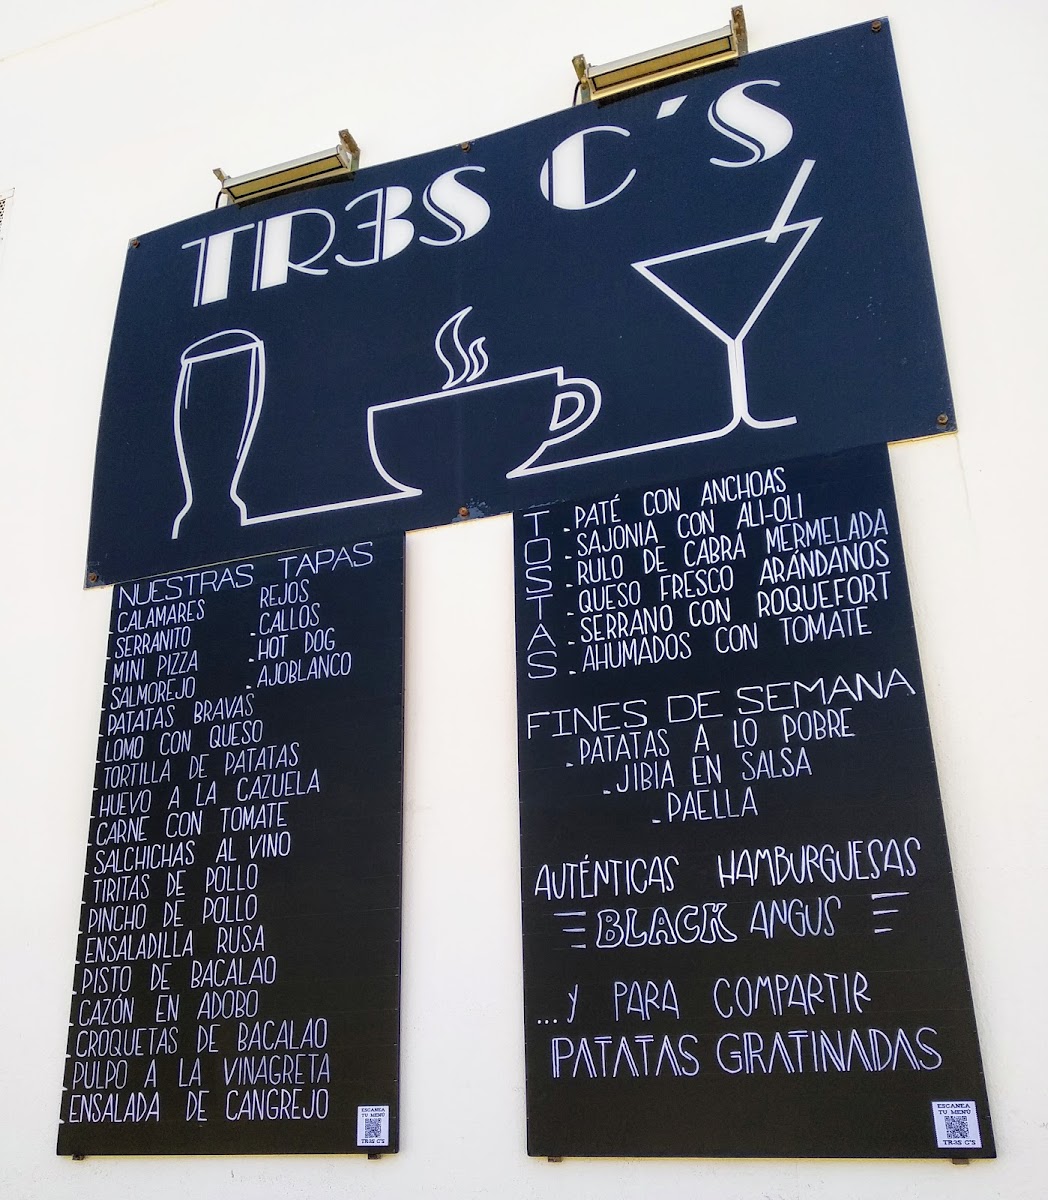 TR3S C´S
NUESTRAS TAPAS
- CALAMARES
- SERRANITO
- MINI PIZZA
- SALMOREJO
- PATATAS BRAVAS
- LOMO CON QUESO
- TORTILLA DE PATATAS
- HUEVO A LA CAZUELA
- CARNE CON TOMATE
- SALCHICHAS AL VINO
- TIRITAS DE POLLO
- PINCHO DE POLLO
- ENSALADILLA RUSA
- PISTO DE BACALAO
- CAZÓN EN ADOBO
- CROQUETAS DE BACALAO
- PULPO A LA VINAGRETA
- ENSALADA DE CANGREJO
REJOS
- CALLOS
- HOT DOG
- AJOBLANCO
ESCANEA
TU MENÚ
TR3S C'S
TOSTAS
- PATÉ CON ANCHOAS
- SAJONIA CON ALI-OLI
- RULO DE CABRA MERMELADA
- QUESO FRESCO ARÁNDANOS
- SERRANO CON ROQUEFORT
- AHUMADOS CON TOMATE
FINES DE SEMANA
- PATATAS A LO POBRE
- JIBIA EN SALSA
- PAELLA
AUTÉNTICAS HAMBURGUESAS
BLACK ANGUS
...Y PARA COMPARTIR
PATATAS GRATINADAS
ESCANEA
TU MENÚ
TR3S C'S